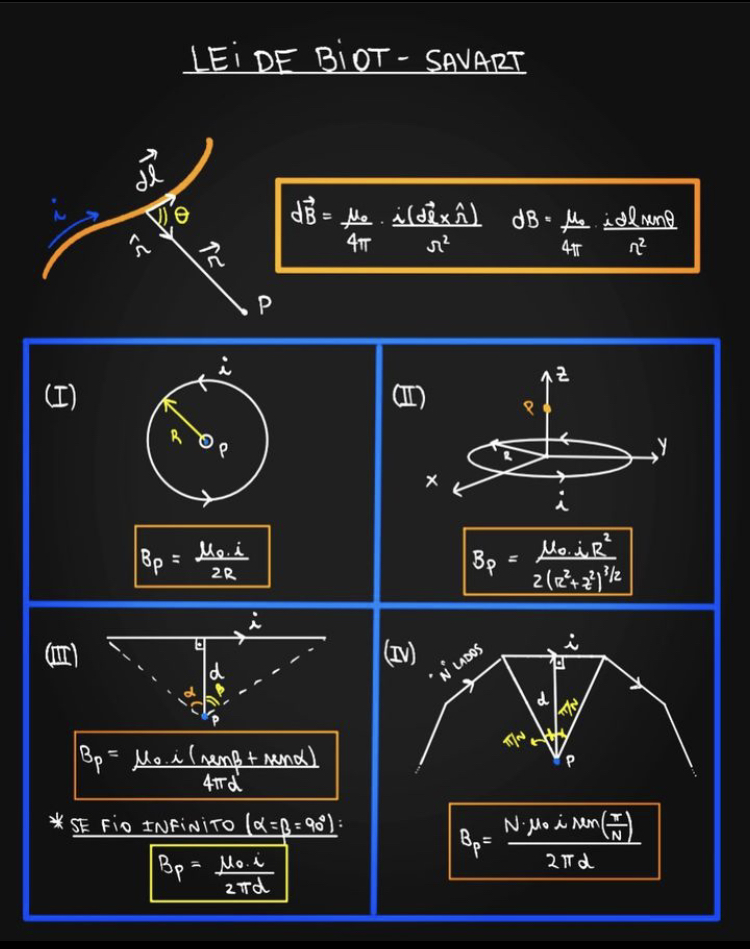 LEI DE BIOT - SAVART
i
d\vec{l}
θ
r̂
\vec{r}
P
d\vec{B} = μ₀/4π · i(d\vec{l} x r̂)/r²
dB = μ₀/4π · i dl senθ/r²
(I)
i
R
P
Bp = μ₀.i/2R
(II)
z
P
R
y
x
i
Bp = μ₀.i R²/2(R²+z²)^3/2
(III)
i
d
α
β
P
Bp = μ₀.i(senβ + senα)/4πd
* SE FIO INFINITO (α=β=90°):
Bp = μ₀.i/2πd
(IV)
"N" LADOS
i
d
π/N
π/N
P
Bp = N.μ₀ i sen(π/N)/2πd